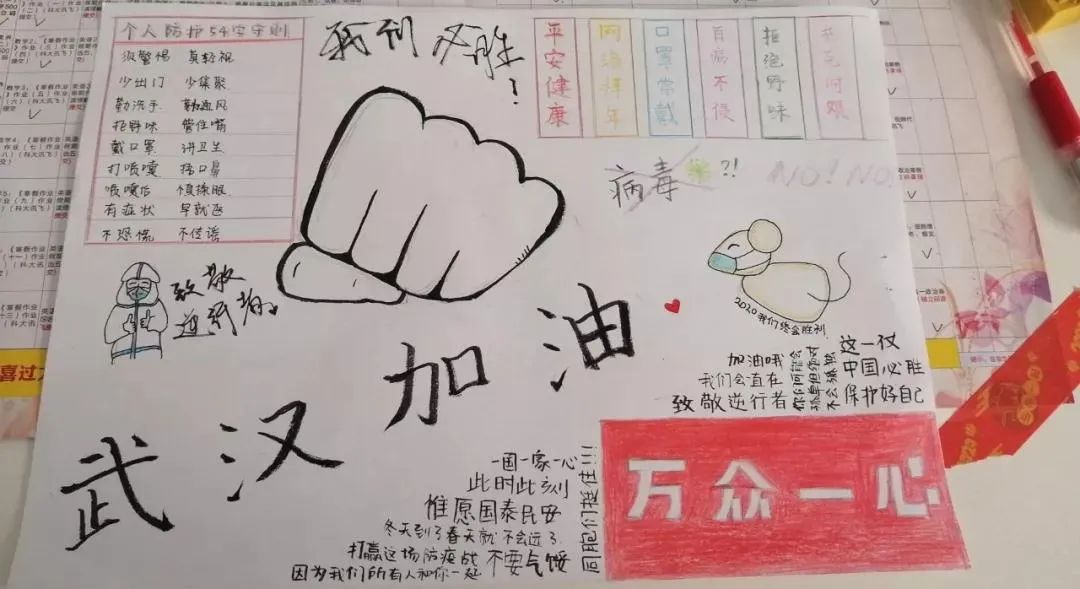 个人防护54字守则
少出门 少集聚
勤洗手 勤通风
拒野味 管住嘴
戴口罩 讲卫生
打喷嚏 捂口鼻
喷嚏后 慎揉眼
有症状 早就医
不恐慌 不传谣
我们必胜!
平安健康
网络拜年
口罩常戴
百病不侵
拒绝野味
病毒?!
NO! NO!
致敬
逆行者
2020我们终会胜利
武汉加油
加油哦
我们会直在
致敬逆行者
这一仗
中国必胜
保护好自己
一国一家一心
此时此刻
惟愿国泰民安
冬天到了春天就不会远了
打赢这场防疫战 不要气馁
因为我们所有人和你一起
同胞们挺住!!!
万众一心